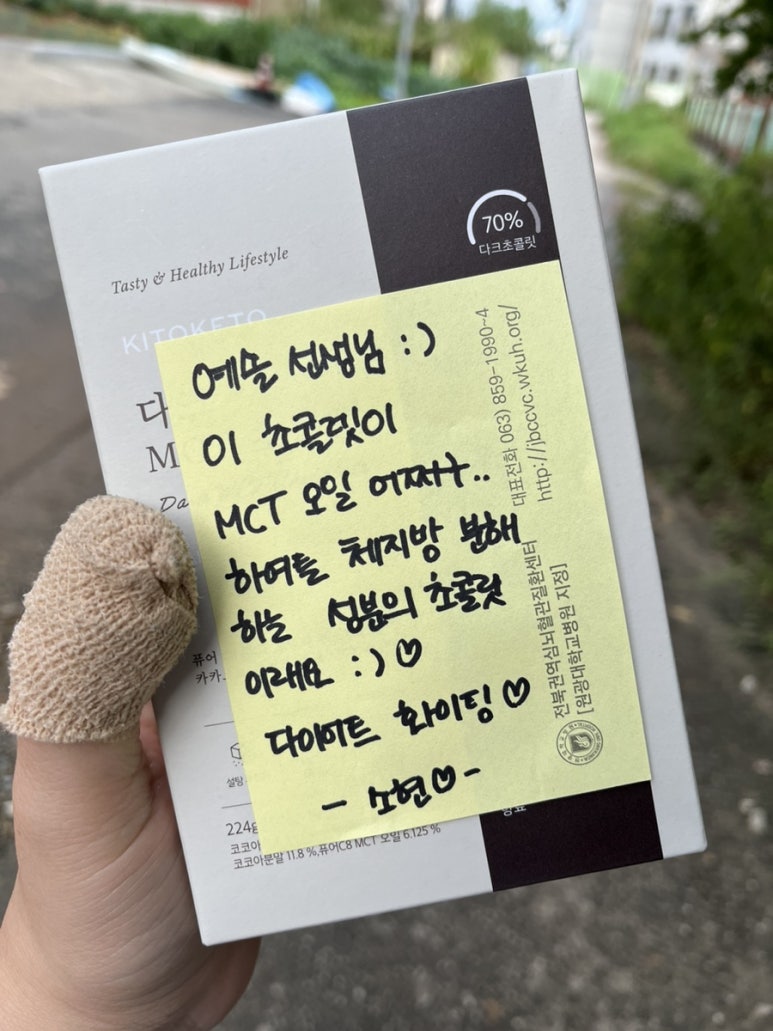 70%
다크초콜릿
Tasty & Healthy Lifestyle
KITOKETO
예슬 선생님 :)
이 쵸콜릿이
MCT 오일 어쩌구..
하여튼 체지방 분해
하는 성분의 쵸콜릿
이래요 :)♡
다이어트 화이팅♡
- 소현♡-
대표전화 063) 859-1990~4
http://jbccvc.wkuh.org/
전북권역심뇌혈관질환센터
[원광대학교병원 지정]
퓨어
카카
설탕
224g
코코아
코코아분말 11.8 %,퓨어C8 MCT 오일 6.125 %